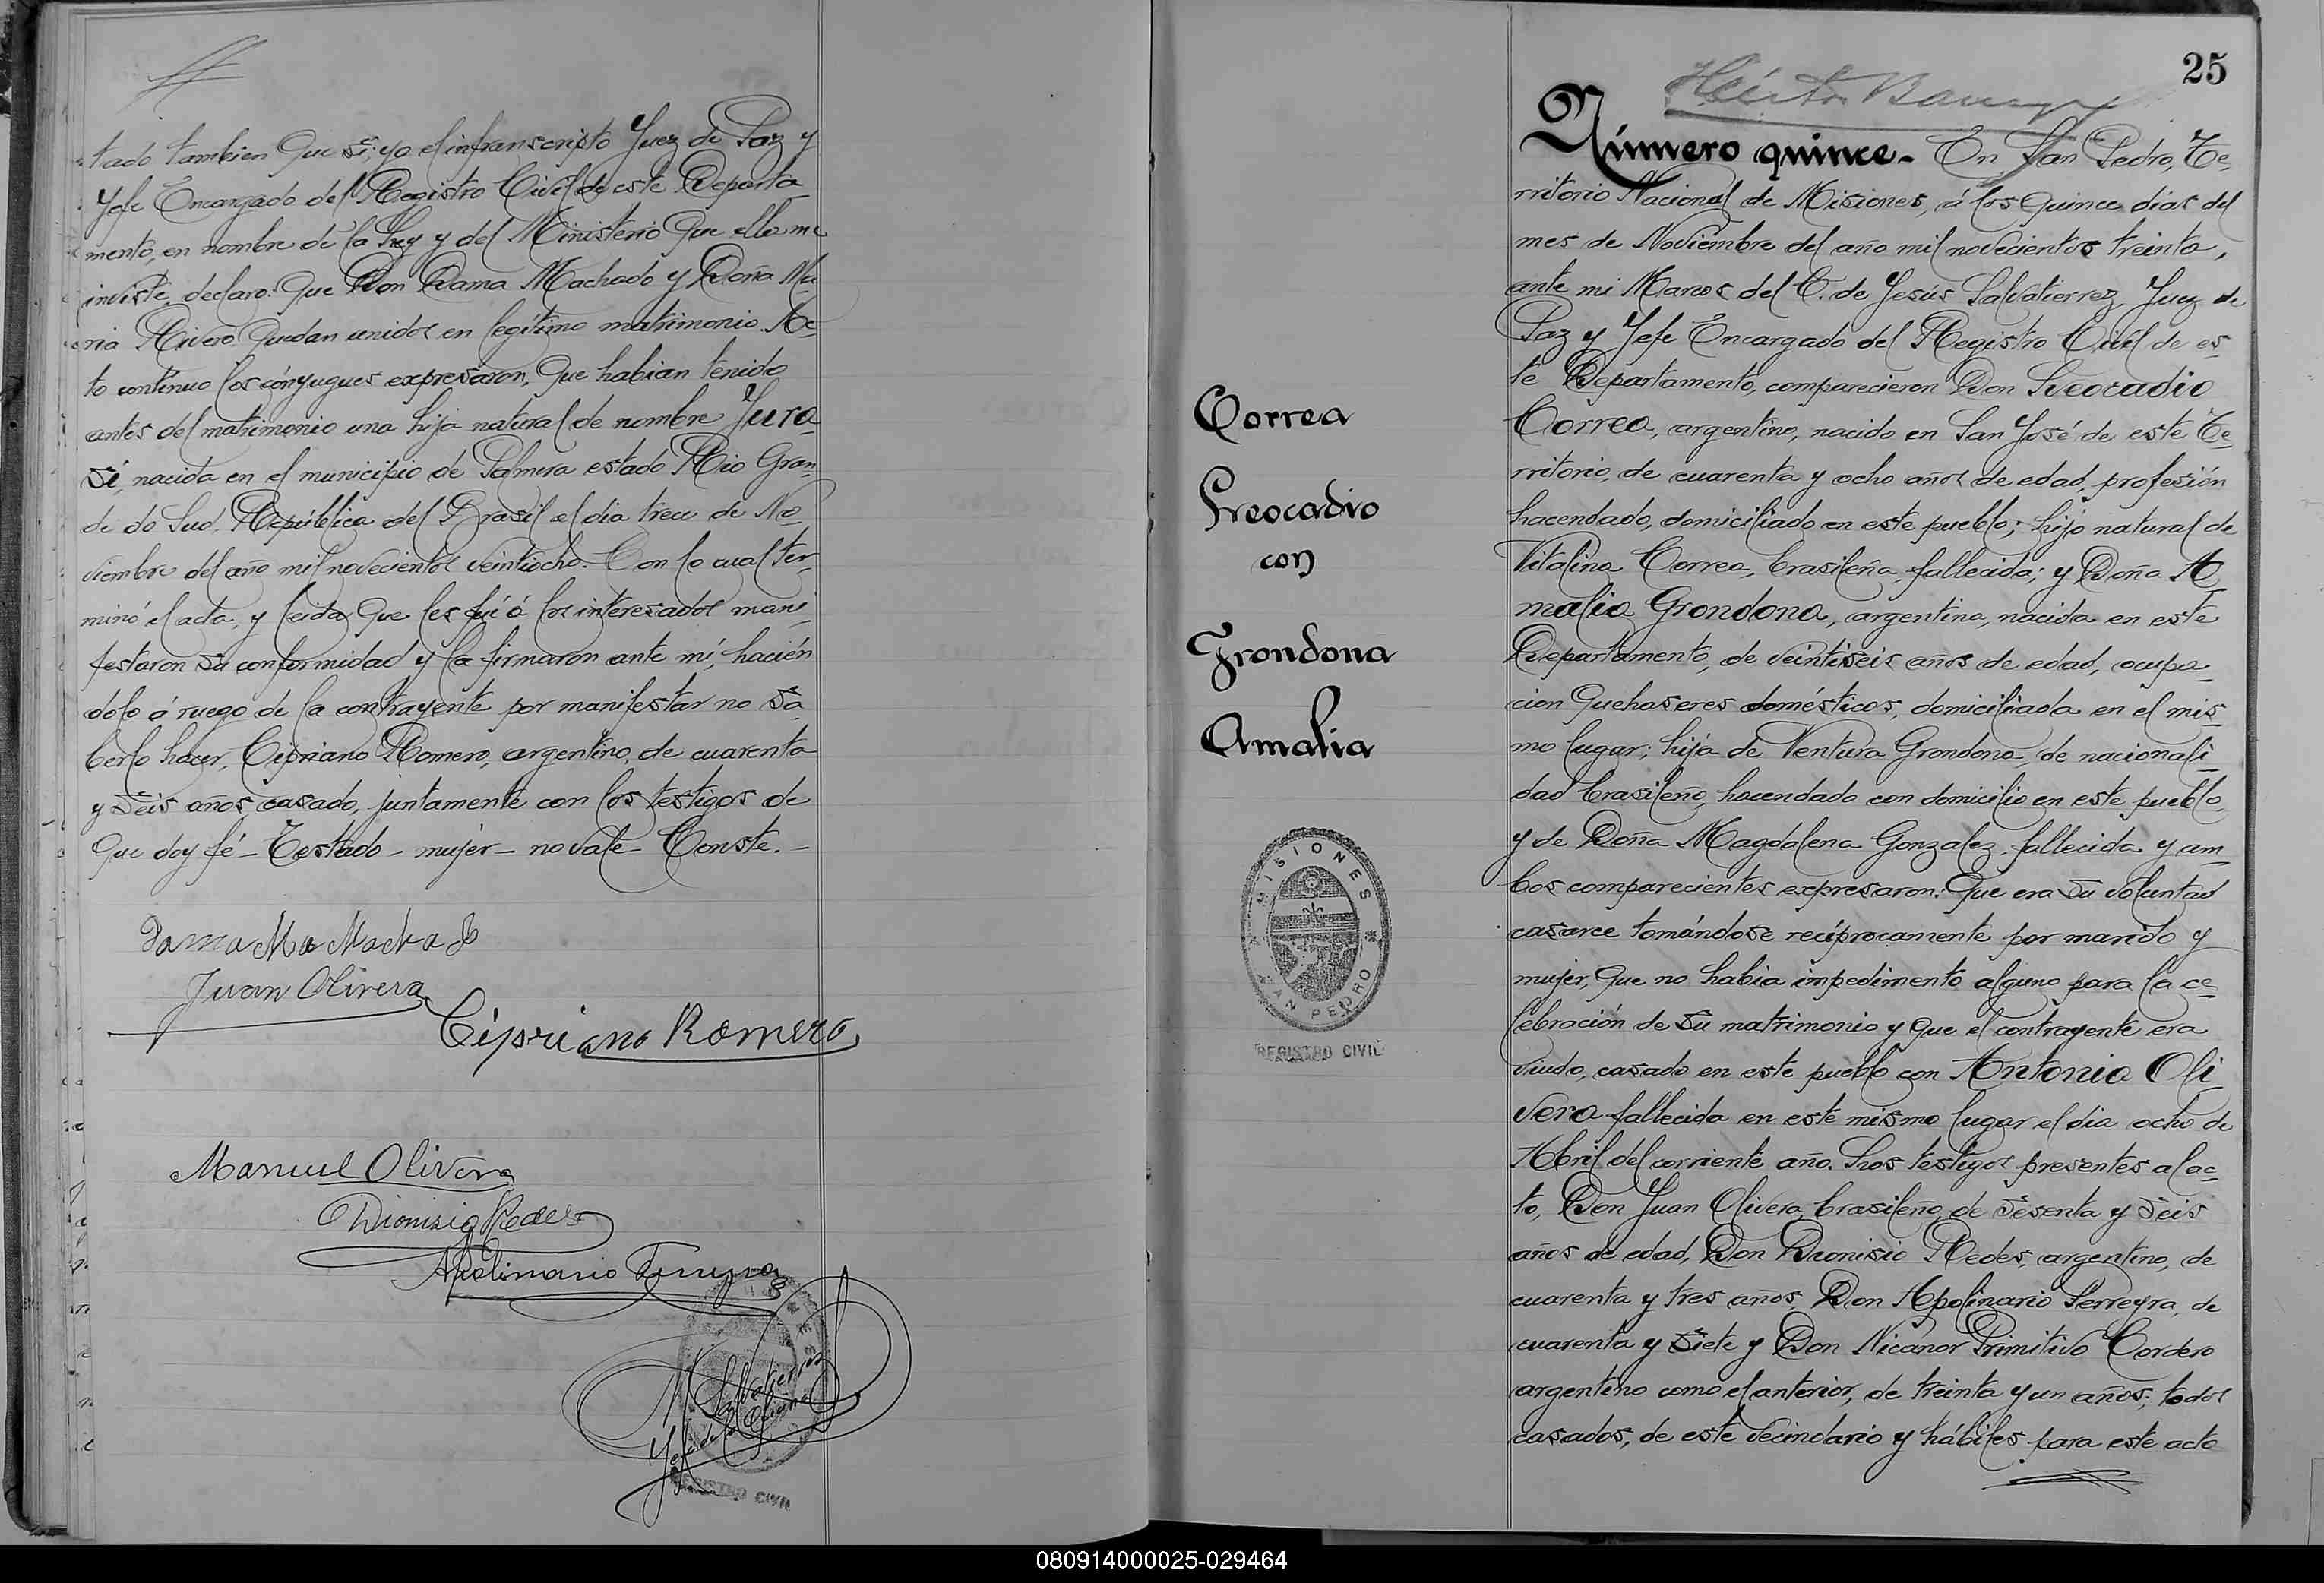 tado tambien que sí; yo el infranscripto Juez de Paz y
Jefe Encargado del Registro Civil de este Departa-
mento, en nombre de la Ley y del Ministerio que ella me
inviste, declaro: Que Don Dama Machado y Doña Ma-
ria Rivero quedan unidos en legítimo matrimonio. Ac-
to contínuo los cónyugues expresaron, que habian tenido
antes del matrimonio una hija natural de nombre Jura-
si, nacida en el municipio de Palmera estado Rio Gran-
de do Sud, República del Brasil el dia trece de No-
viembre del año mil novecientos veintiocho. Con lo cual ter-
minó el acta, y leida que les fué á los interesados mani-
festaron su conformidad y la firmaron ante mí, hacién-
dolo á ruego de la contrayente por manifestar no sa-
berlo hacer, Cipriano Romero, argentino, de cuarenta
y seis años, casado, juntamente con los testigos de
que doy fé - Testado - mujer - no vale - Conste. -
Dama Ma Machado
Juan Olivera
Cipriano Romero
Manuel Olivera
Dionisio Redes
Apolinario Ferreyra
M. Salvatierrez
REGISTRO CIVIL
25
Héctor
Número quince. - En San Pedro, Te-
rritorio Nacional de Misiones, á los quince dias del
mes de Noviembre del año mil novecientos treinta,
ante mi Marcos del C. de Jesús Salvatierrez, Juez de
Paz y Jefe Encargado del Registro Civil de es-
te Departamento, comparecieron Don Leocadio
Correa, argentino, nacido en San José de este Te-
rritorio, de cuarenta y ocho años de edad, profesión
hacendado, domiciliado en este pueblo; hijo natural de
Vitalina Correa, brasileña, fallecida; y Doña A-
malia Grondona, argentina, nacida en este
Departamento, de veintiseis años de edad, ocupa-
cion quehaseres domésticos, domiciliada en el mis-
mo lugar; hija de Ventura Grondona, de nacionali-
dad brasileño, hacendado con domicilio en este pueblo,
y de Doña Magdalena Gonzalez, fallecida y am-
bos comparecientes expresaron: Que era su voluntad
casarce tomándose recíprocamente por marido y
mujer, que no habia impedimento alguno para la ce-
lebración de su matrimonio y que el contrayente era
viudo, casado en este pueblo con Antonia Oli-
vera fallecida en este mismo lugar el dia ocho de
Abril del corriente año. Los testigos presentes al ac-
to, Don Juan Olivera, brasileño, de sesenta y seis
años de edad, Don Dionisio Redes, argentino, de
cuarenta y tres años, Don Apolinario Ferreyra, de
cuarenta y siete y Don Nicanor Primitivo Cordero
argentino como el anterior, de treinta y un años; todos
casados, de este vecindario y hábiles para este acto
Correa
Leocadio
con
Grondona
Amalia
MISIONES
SAN PEDRO
REGISTRO CIVIL
080914000025-029464